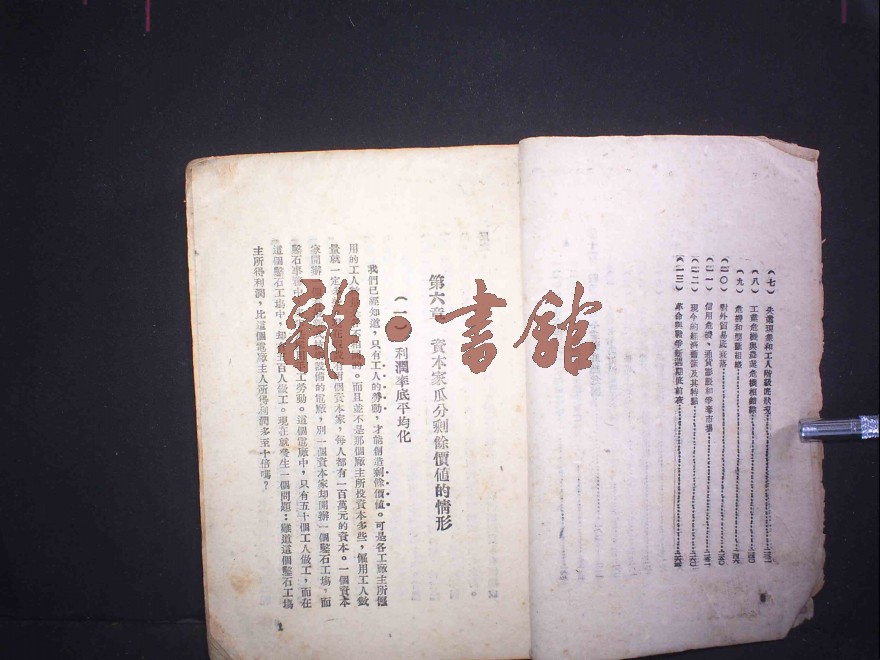 (七) 失業現象和工人階級底狀況
(八) 工業危機與農業危機相錯綜
(九) 危機和壟斷組織
(一〇) 對外貿易底衰落
(一一) 信用危機、通貨膨脹和爭奪市場
(一二) 現今的經濟蕭條及其特點
(一三) 革命與戰爭新週期底前夜
第六章 資本家瓜分剩餘價值的情形
(一) 利潤率底平均化
我們已經知道,只有工人的勞動,才能創造剩餘價值。可是各工廠主所僱
用的工人 的。而且並不是那個廠主所投資本多些,僱用工人數
量就一定 有兩個資本家,每人都有一百萬元的資本。一個資本
家開辦一個 設備的電廠,別一個資本家却開辦一個鑿石工場,而
鑿石事 工勞動。這個電廠中,只有五十個工人做工,而在
這個鑿石工場中,却 百人做工。現在就發生一個問題:難道這個鑿石工場
主所得利潤,比這個電廠主人所得利潤多至十倍嗎?
1
雅·書館